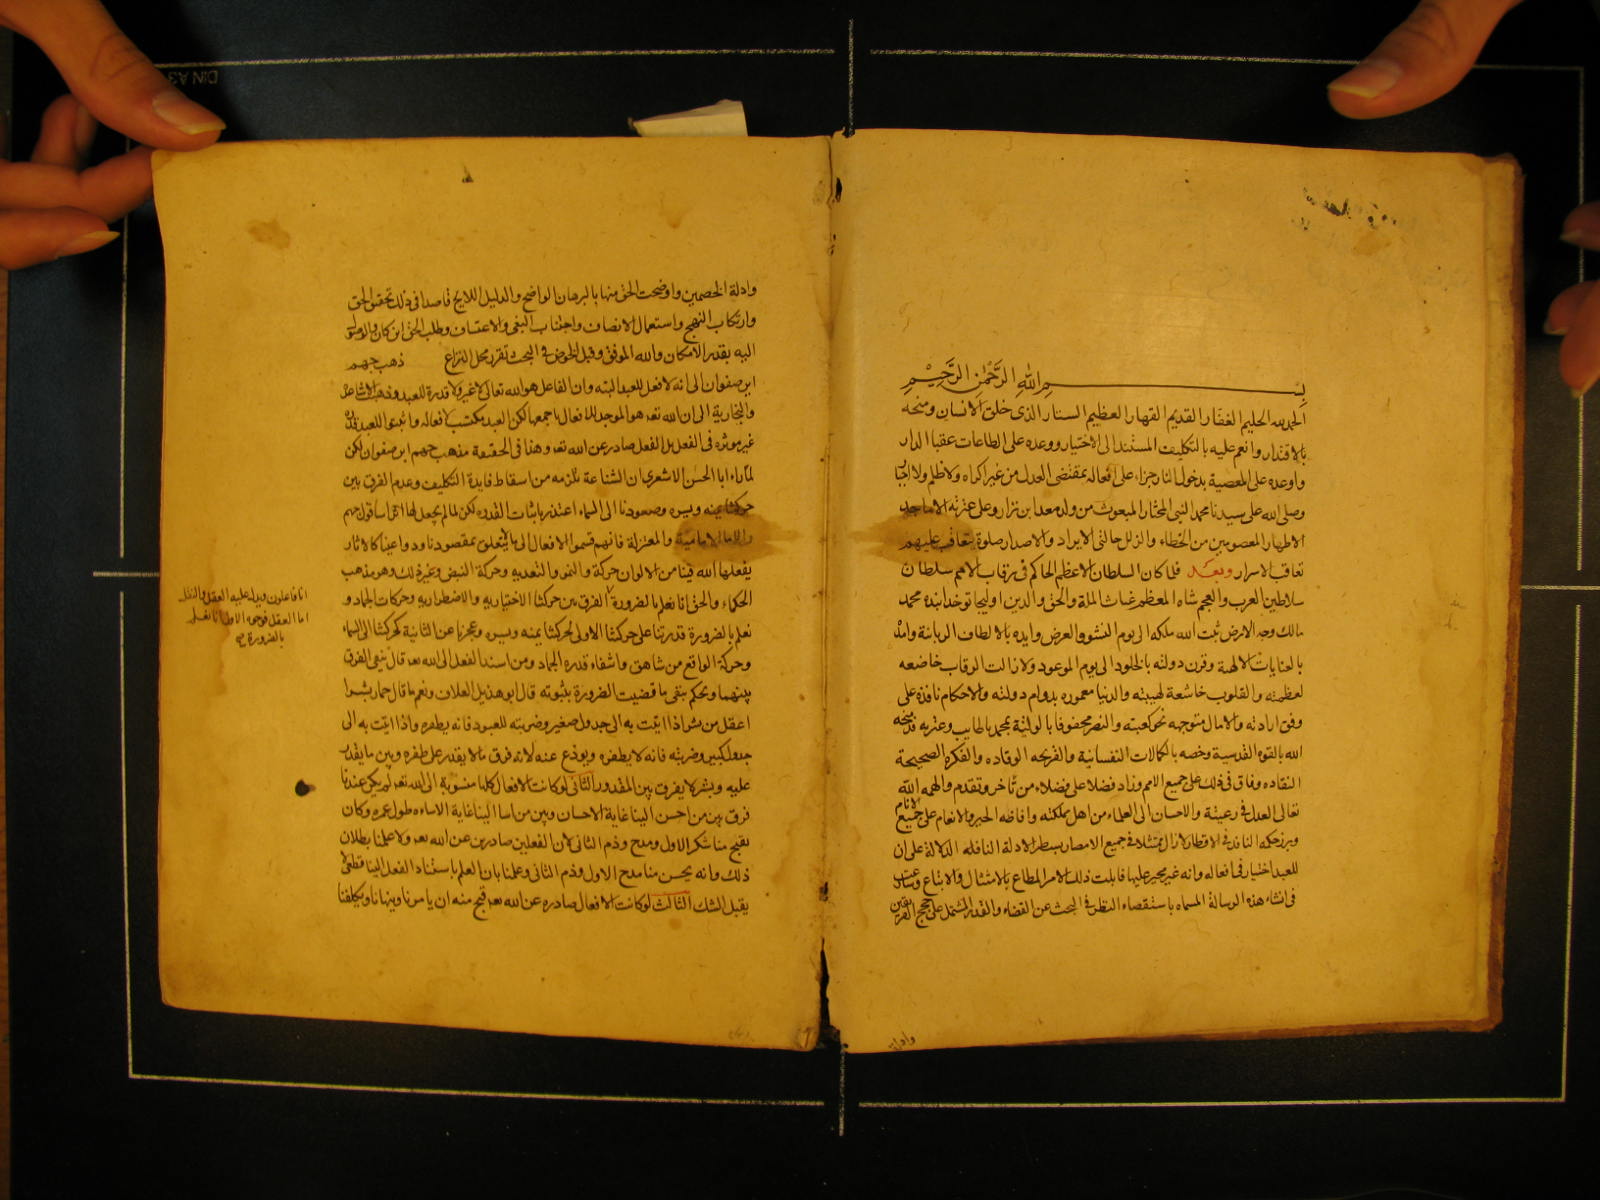 بسم الله الرحمن الرحيم
الحمد لله الحليم الغفار القديم القهار العظيم الستار الذى خلق الانسان ومنحه
بالاقتدار وانعم عليه بالتكليف المستند الى الاختيار ووعده على الطاعات عقبا الدار
واوعده على المعصية بدخول النار جزاء على افعاله بمقتضى العدل من غير اكراه ولا ظلم ولا
وصلى الله على سيدنا محمد النبى المختار المبعوث من ولد معد ابن نزار وعلى عترته الاماجد
الاطهار المعصومين من الخطاء والزلل حالتى الايراد والاصدار صلوة يتعاقب عليهم
تعاقب الاسرار وبعد فلما كان السلطان الاعظم الحاكم فى رقاب الامم سلطان
سلاطين العرب والعجم شاه المعظم غياث الملة والحق والدين اولجايتو خدابنده محمد
مالك وجه الارض ثبت الله ملكه الى يوم النشر والعرض وايده بالالطاف الربانية وامد
بالعنايات الالهية وقرن دولته بالخلود الى يوم الموعود ولا زالت الرقاب خاضعه
لعظمته والقلوب خاشعة لهيبته والدنيا معموره بدوام دولته والاحكام نافذة على
وفق ارادته والامال متوجهه نحو كعبته والنصر محفوفا بالويته بمحمد وعترته قد منحه
الله بالقوه القدسية وخصه بالكمالات النفسانية والقريحه الوقاده والفكرة الصحيحة
النقاده وفاق فى ذلك على جميع الامم وزاد فضلا على فضلاء من تاخر وتقدم والهمه الله
تعالى العدل فى رعيته والاحسان الى العلماء من اهل مملكته وافاضه الخير والانعام على جميع الانام
وبرز حكمه النافذ فى الاقطار لا زال ممتثلا فى جميع الامصار بسطر الادلة النافله الدلالة على ان
للعبد اختيار فى افعاله وانه غير مجبر عليها قابلت ذلك الامر المطاع بالامتثال والاتباع وسارعت
فى انشاء هذه الرسالة المسماه باستقصاء النظر فى البحث عن القضاء والقدر المشتمل على حجج الفريقين
وادلة
وادلة الخصمين واوضحت الحق منها بالبرهان الواضح والدليل اللايح قاصدا فى ذلك تحقيق الحق
وارتكاب النهج واستعمال الانصاف واجتناب البغى والاعتساف وطلب الحق اين كان والوصول
اليه بقدر الامكان والله الموفق وقبل الخوض فى البحث تقرر محل النزاع ذهب جهم
ابن صفوان الى انه لا فعل للعبد البته وان الفاعل هو الله تعالى لا غير ولا قدرة للعبد وذهب الاشاعره
والنجارية الى ان الله تعه هو الموجد للافعال باجمعها لكن العبد مكتسب لافعاله واثبتوا للعبد قدره
غير موثره فى الفعل بل الفعل صادر عن الله تعه وهذا فى الحقيقة مذهب جهم ابن صفوان لكن
لما راء ابا الحسن الاشعرى ان الشناعة تلزمه من اسقاط فايدة التكليف وعدم الفرق بين
حركتنا يمنه ويسره وصعودنا الى السماء اعتذر باثبات القدره لكن لما لم يجعل لها اثرا ساوقول جهم
واما الامامية والمعتزلة فانهم قسموا الافعال الى ما يتعلق بمقصودنا ودواعينا كالاثار
يفعلها الله فينا من الالوان حركة والنمو والتغديه وحركة النبض وغير ذلك وهو مذهب
الحكماء والحق انا نعلم بالضرورة الفرق بين حركتنا الاختياريه والاضطراريه وحركات الجماد و
نعلم بالضرورة قدرتنا على حركتنا الاولى كحركتنا يمنه ويسره وعجزنا عن الثانية كحركتنا الى السماء
وحركة الواقع من شاهق وانتفاء قدرة الجماد ومن اسند الفعل الى الله تعه قال ينفى الفرق
بينهما ويحكم بنفى ما قضيت الضرورة بثبوته قال ابو هذيل العلاف ونعم ما قال حمار بشر
اعقل من بشر اذا اتيت به الى جدول صغير وضربته للعبور فانه يطفره واذا اتيت به الى
جدول كبير وضربته فانه لا يطفره ويروغ عنه لانه فرق ما لا يقدر على طفره وبين ما يقدر
عليه وبشر لا يفرق بين المقدور الثانى لو كانت الافعال كلها منسوبة الى الله تعه لم يكن عندنا
فرق بين من احسن الينا غاية الاحسان وبين من اسا الينا غاية الاساءه طول عمره وكان
يقبح منا شكر الاول ومدح وذم الثانى لان الفعلين صادرين عن الله تعه ولما علمنا بطلان
ذلك وانه يحسن منا مدح الاول وذم الثانى وعلمنا بان العلم باستناد الفعل الينا قطعى لا
يقبل الشك الثالث لو كانت الافعال صادره عن الله تعه قبح منه ان يامرنا وينهانا ويكلفنا
انا فاعلون ويدل عليه العقل والنقل
اما العقل فوجوه الاول انا نعلم
بالضرورة